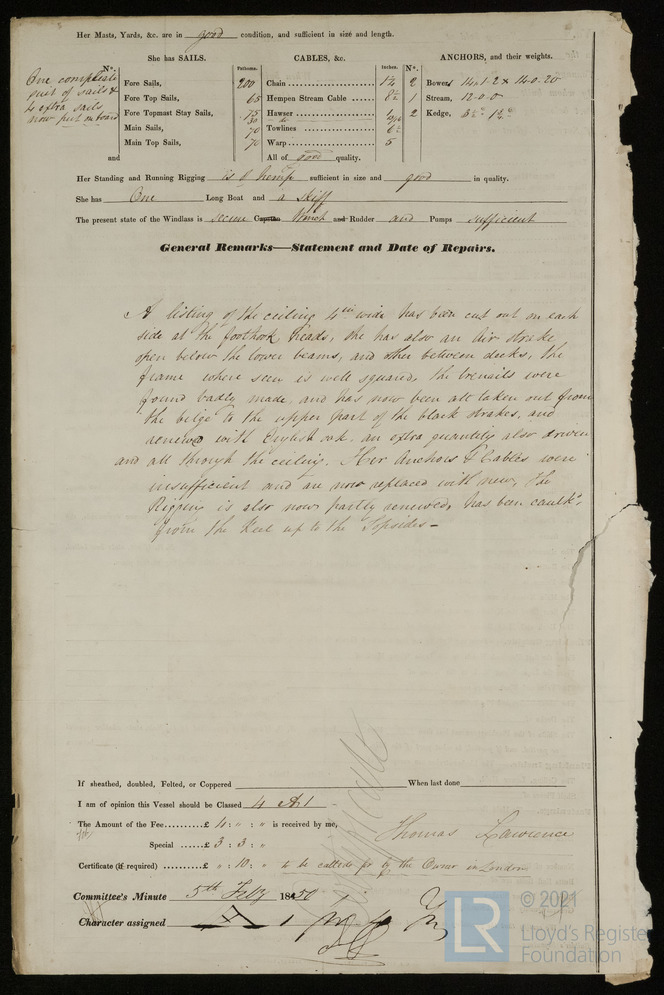 Her Masts, Yards, &c. are in good condition, and sufficient in size and length.
She has SAILS. CABLES, &c. ANCHORS, and their weights.
N°. Fathoms. Inches. N°.
One complete
suit of sails &
4 extra sails
now put on board
Fore Sails, 200 Chain 2 Bowers 14.1.2 & 14.0.20
Fore Top Sails, 65 Hempen Stream Cable 1 Stream, 12.0.0
Fore Topmast Stay Sails, 75 Hawser 2 Kedge,
Main Sails, 70 Towlines
Main Top Sails, 70 Warp 5
and All of good quality.
Her Standing and Running Rigging is of hemp sufficient in size and good in quality.
She has One Long Boat and a Skiff
The present state of the Windlass is secure Capstan Winch and Rudder and Pumps sufficient
General Remarks—Statement and Date of Repairs.
A listing of the ceiling 4 in wide has been cut out on each
side at the foothook heads, she has also an Air strake
open below the lower beams, and other between decks, the
frame where seen is well squared, the trenails were
found badly made, and has now been all taken out from
the bilge to the upper part of the black strakes, and
renewed with English oak, an extra quantity also driven
and all through the ceiling. Her Anchors & Cables were
insufficient and are now replaced with new, the
Rigging is also now partly renewed, has been caulkd
from the Keel up to the Topsides —
If sheathed, doubled, Felted, or Coppered When last done
I am of opinion this Vessel should be Classed 4 A1
The Amount of the Fee £ 4 : „ : „ is received by me,
Thomas Lawrence
Special £ 3 : 3 : „
Certificate (if required) £ „ : 10 : „ to be called for by the Owner in London
Committee's Minute 5th Feby 1850
Character assigned 4 A 1
© 2021
LR
Lloyd's Register
Foundation